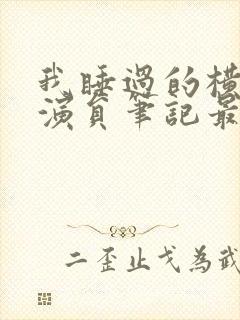 我睡過的橫
演員筆記最
二歪止戈為武